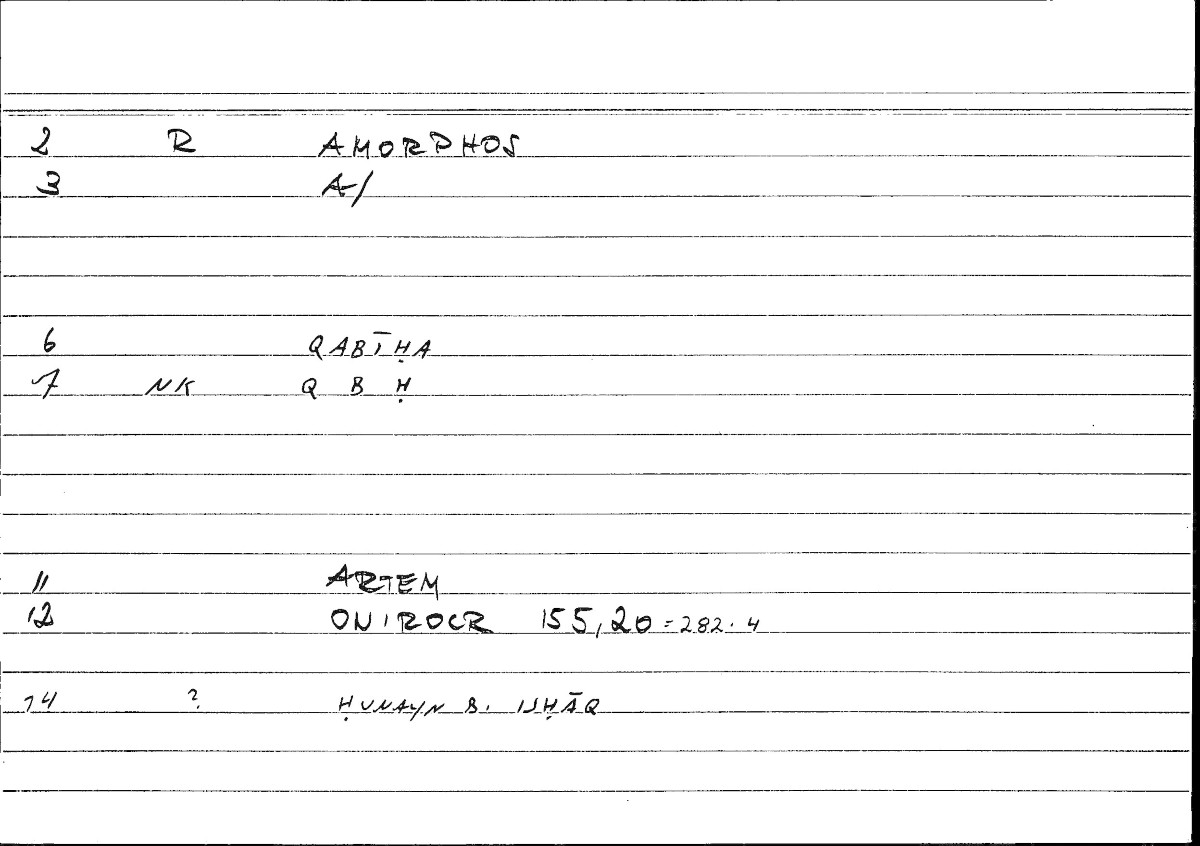 2 R AMORPHOS
3 A-/
6 QABĪḤA
7 NK Q B Ḥ
11 ARTEM
12 ONIROCR 155,20 = 282.4
14 ? ḤUNAYN B. ISḤĀQ